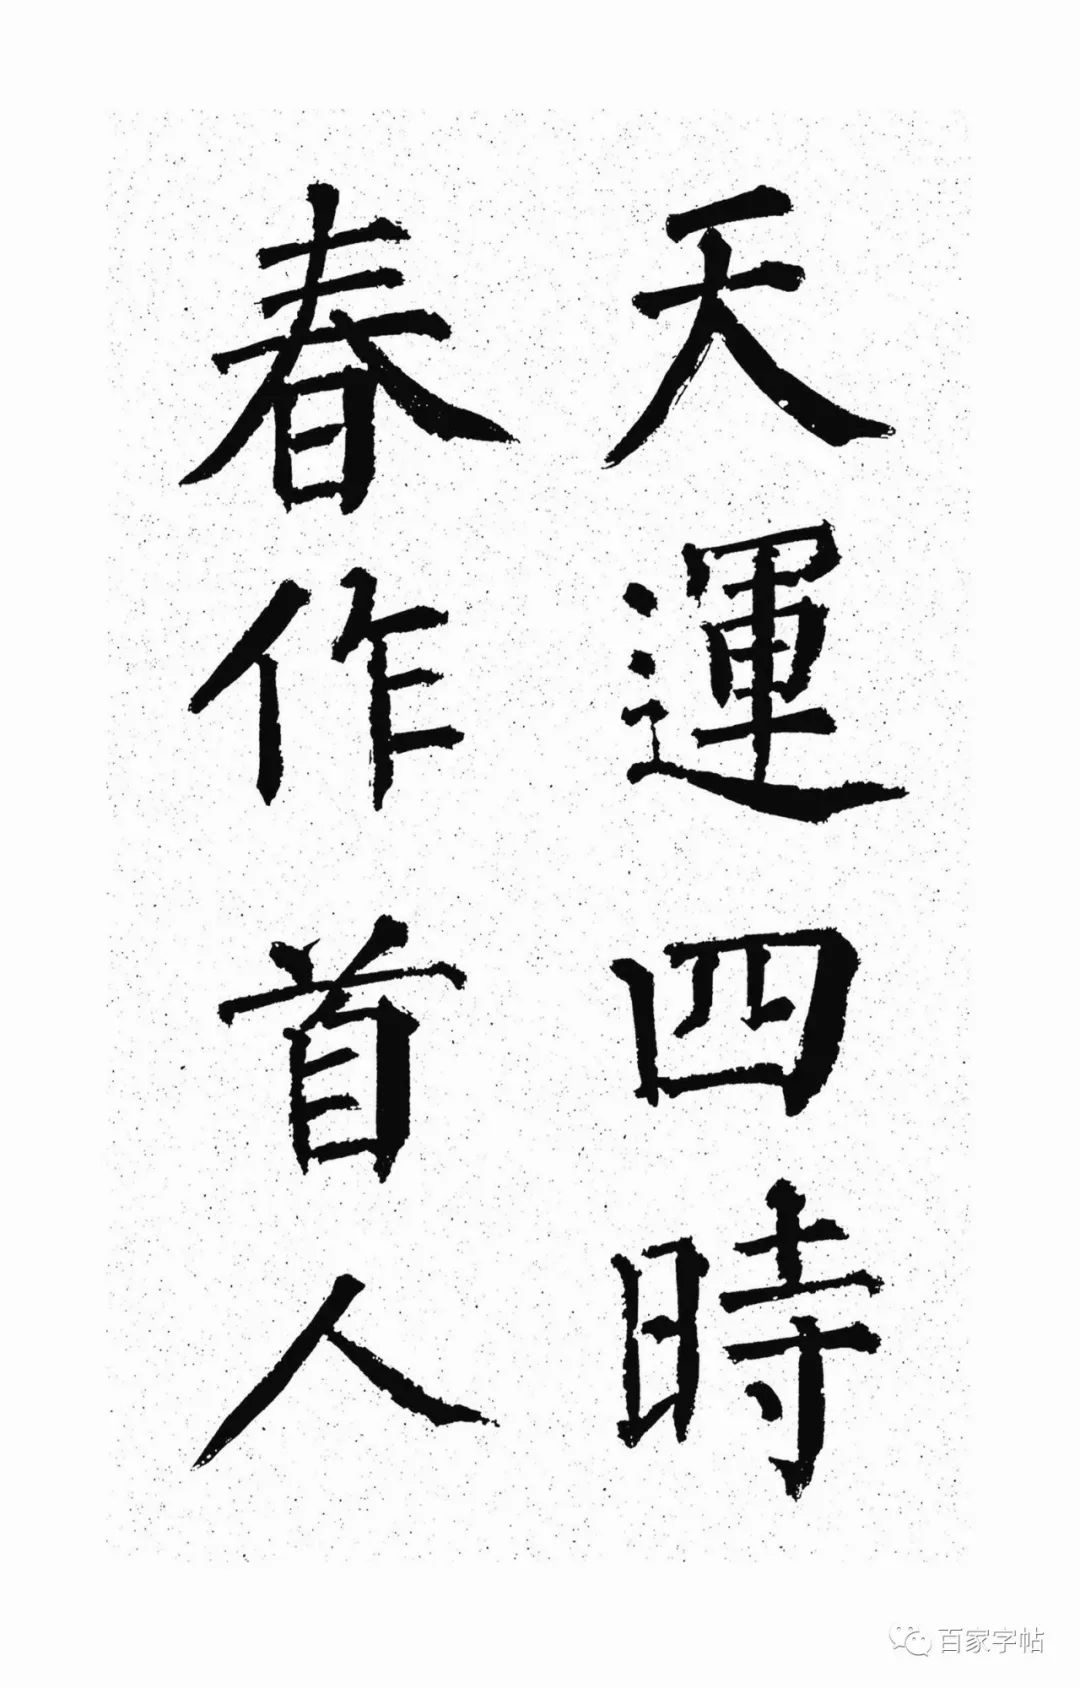 天運四時
春作首人
百家字帖